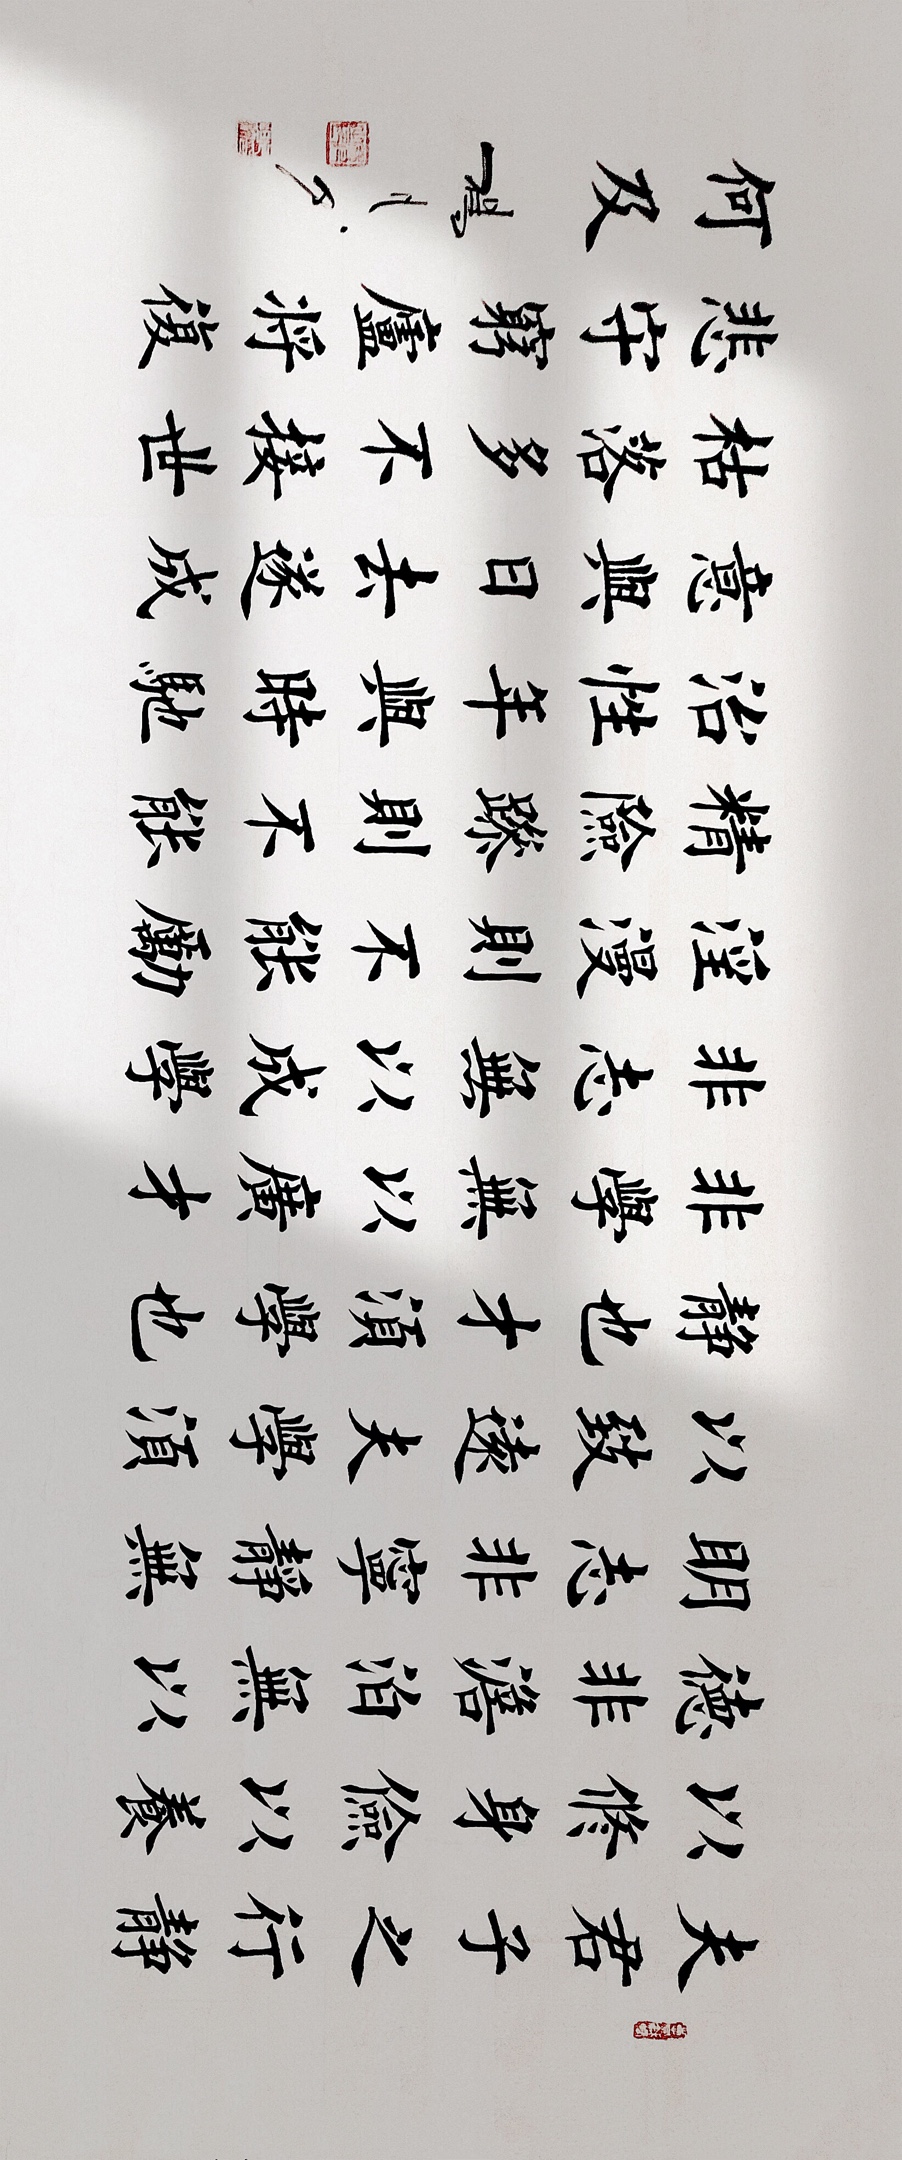 夫君子之行靜
以修身儉以養
德非澹泊無以
明志非寧靜無
以致遠夫學須
靜也才須學也
非學無以廣才
非志無以成學
淫漫則不能勵
精險躁則不能
治性年與時馳
意與日去遂成
枯落多不接世
悲守窮廬將復
何及